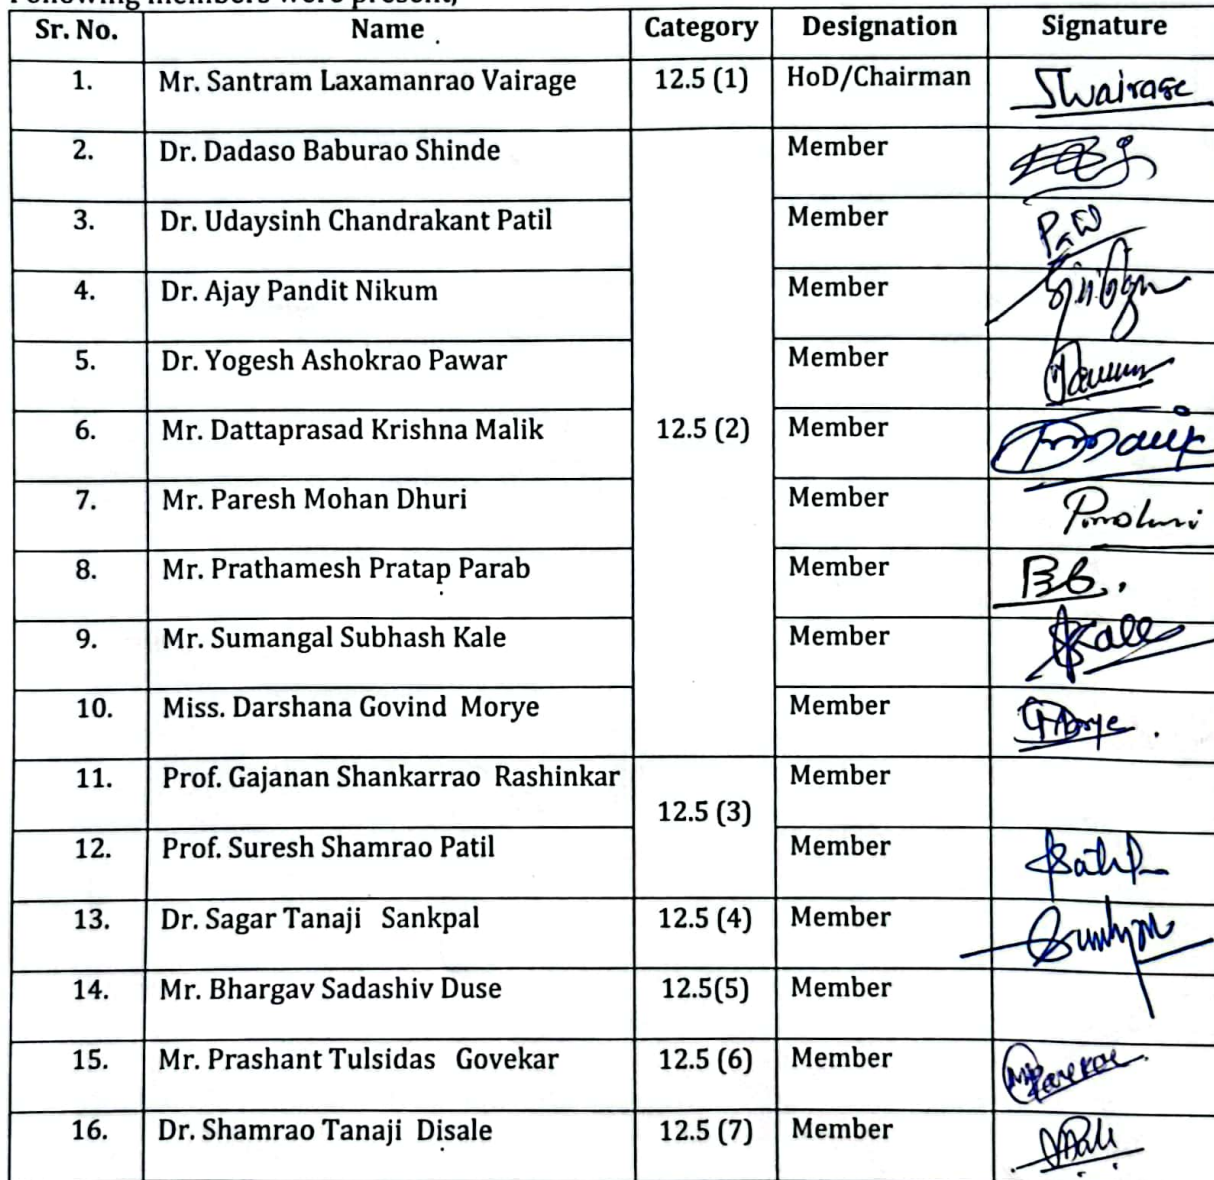 Following members were present,
Sr. No. Name Category Designation Signature
1. Mr. Santram Laxamanrao Vairage 12.5 (1) HoD/Chairman SVairage
2. Dr. Dadaso Baburao Shinde Member
3. Dr. Udaysinh Chandrakant Patil Member
4. Dr. Ajay Pandit Nikum Member
5. Dr. Yogesh Ashokrao Pawar Member
6. Mr. Dattaprasad Krishna Malik 12.5 (2) Member
7. Mr. Paresh Mohan Dhuri Member
8. Mr. Prathamesh Pratap Parab Member
9. Mr. Sumangal Subhash Kale Member SKale
10. Miss. Darshana Govind Morye Member
11. Prof. Gajanan Shankarrao Rashinkar Member
12.5 (3)
12. Prof. Suresh Shamrao Patil Member
13. Dr. Sagar Tanaji Sankpal 12.5 (4) Member
14. Mr. Bhargav Sadashiv Duse 12.5(5) Member
15. Mr. Prashant Tulsidas Govekar 12.5 (6) Member
16. Dr. Shamrao Tanaji Disale 12.5 (7) Member